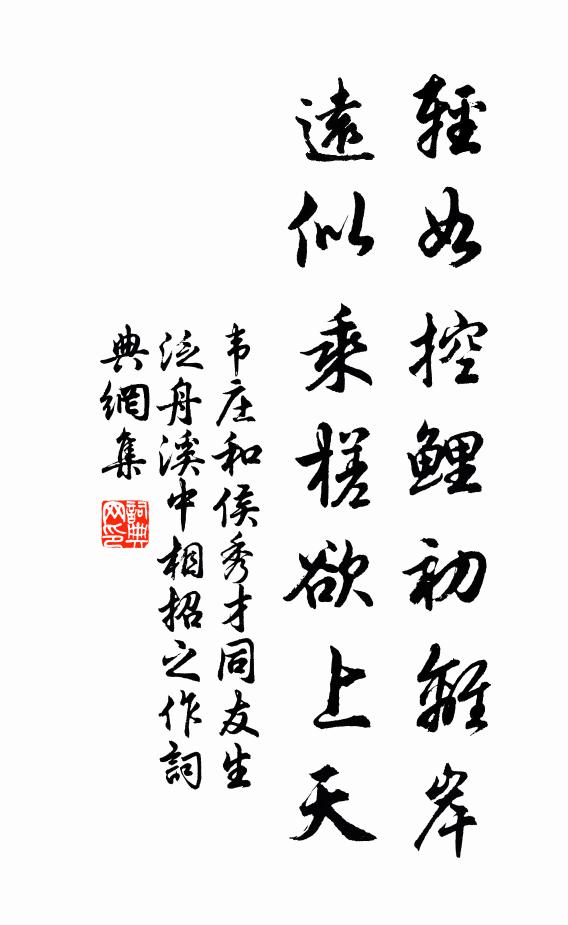 輕如控鯉初離岸
遠似乘槎欲上天
韦庄和侯秀才同友生
泛舟溪中相招之作詞
典網集
詞典
网印